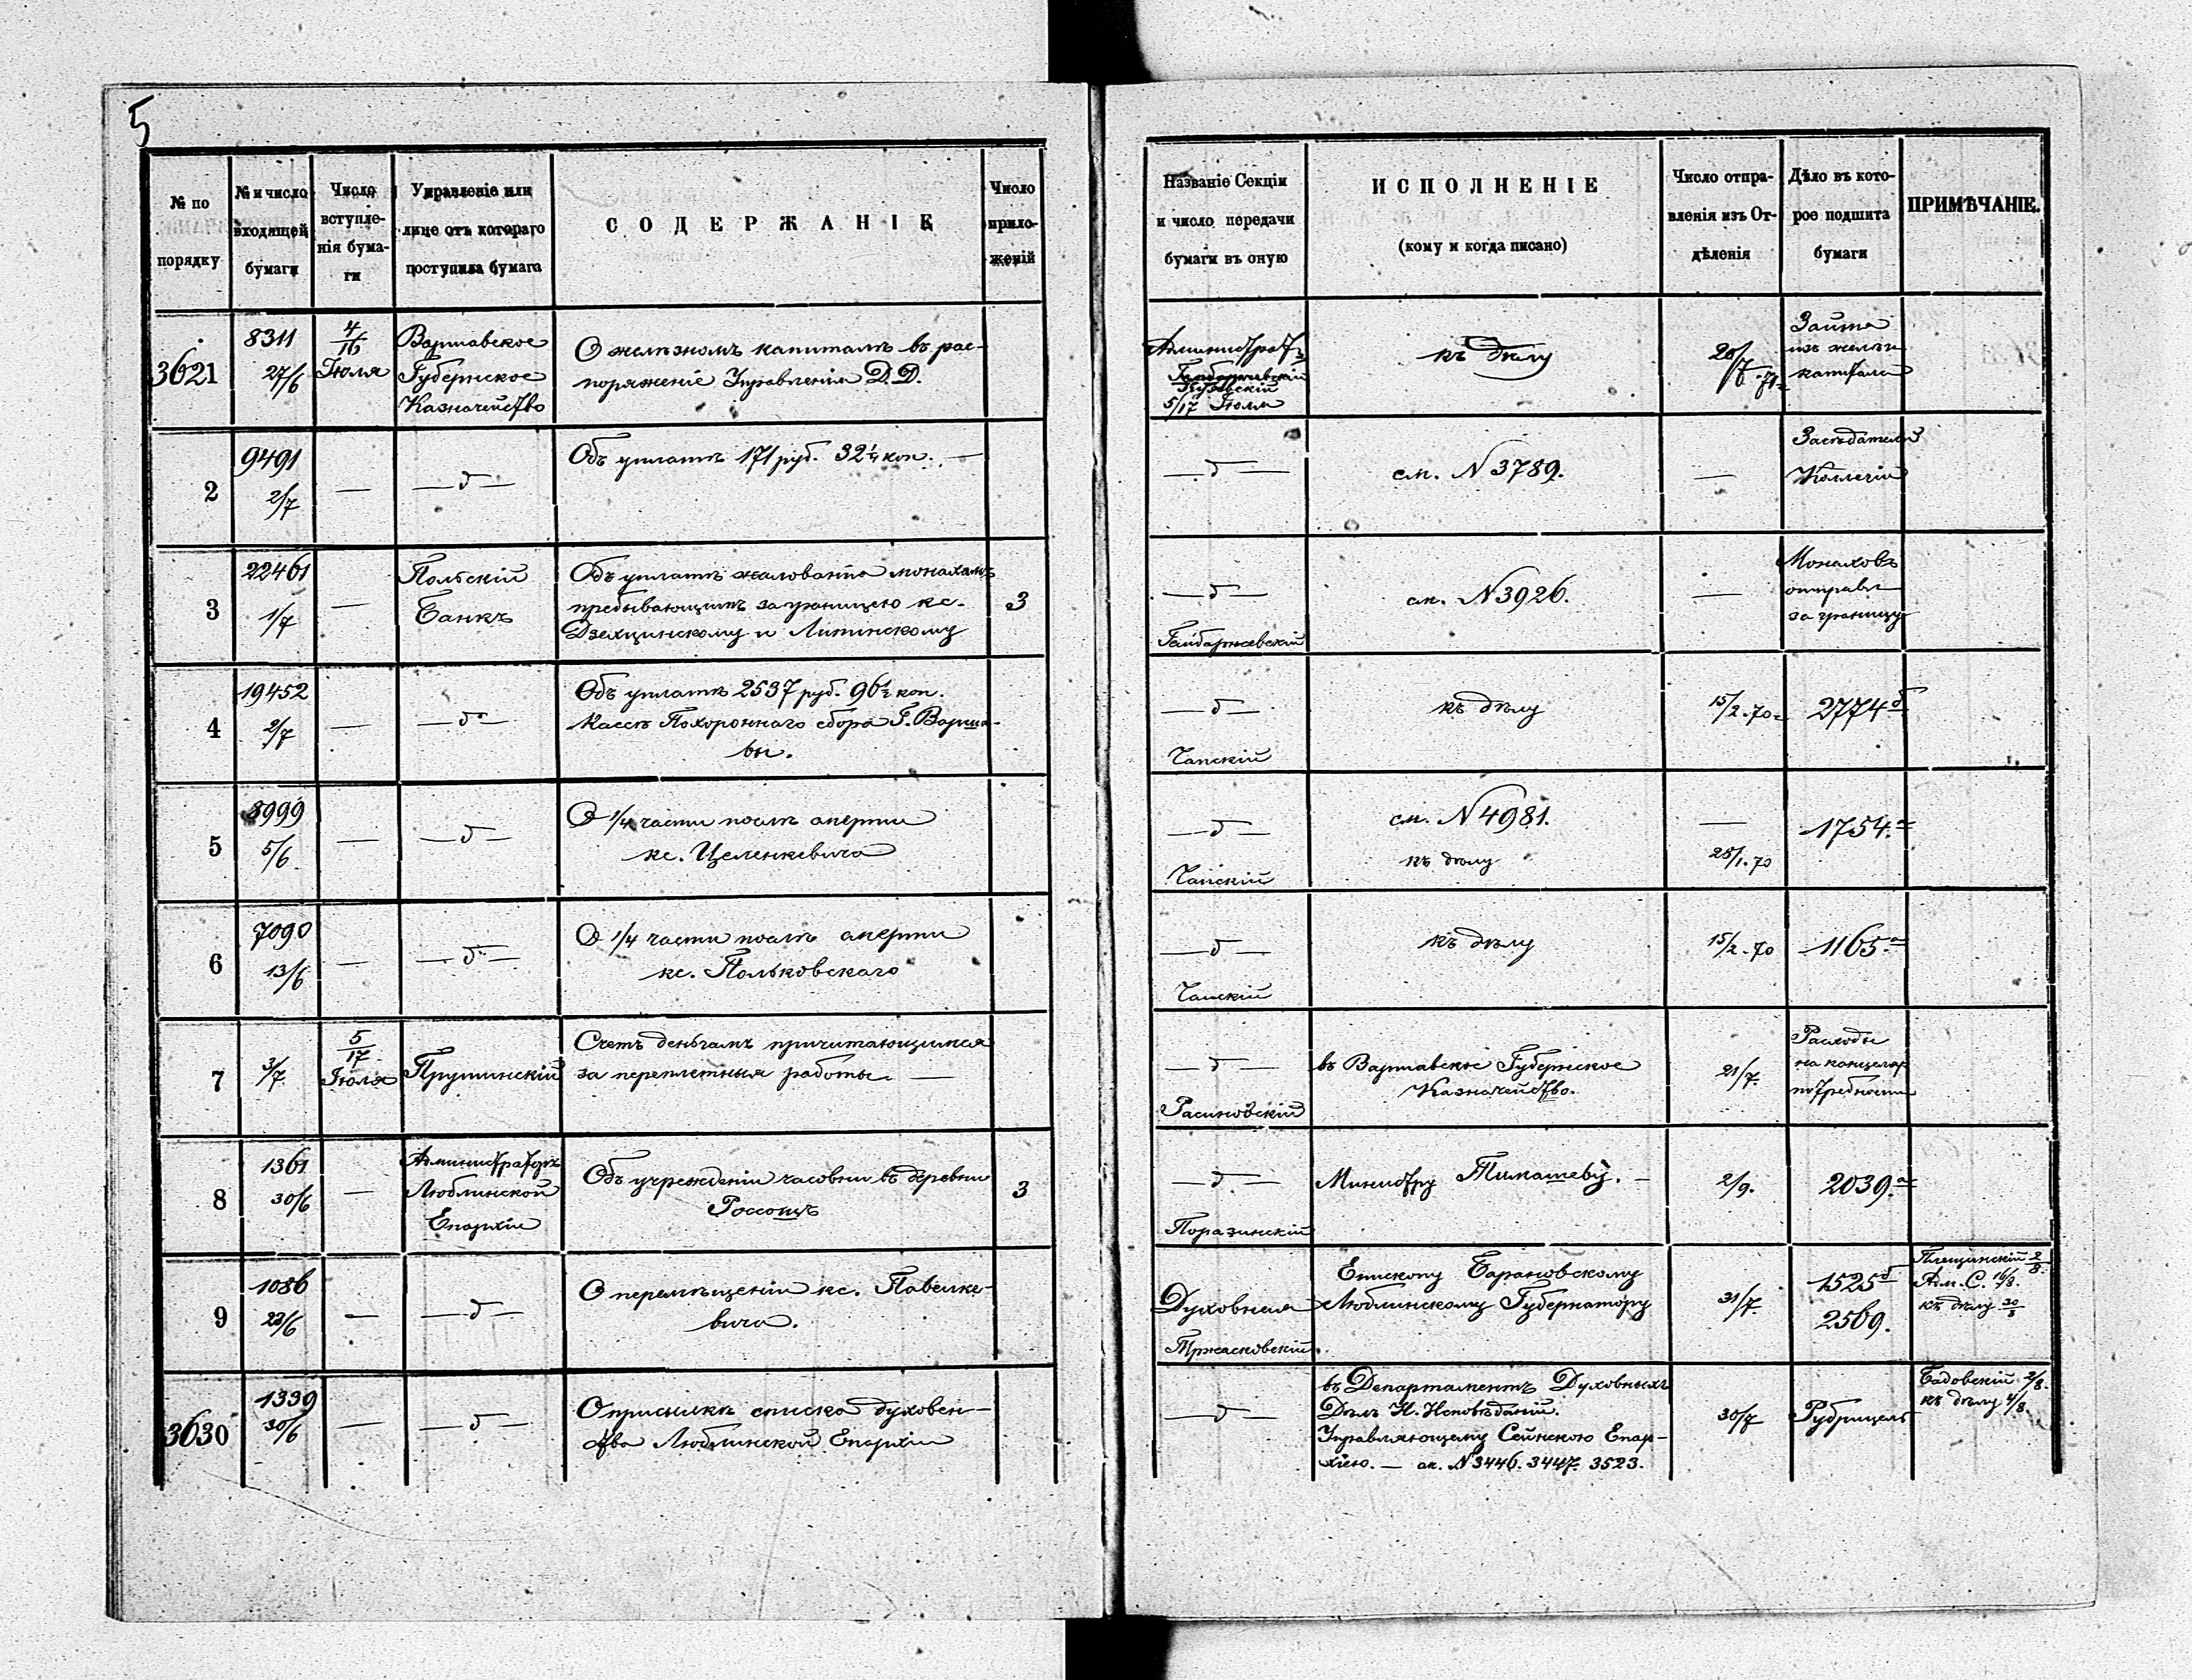 5
№ по порядку
№ и число входящей бумаги
Число вступле-
нія бума-
ги
Управленіе или
лице отъ котораго
поступила бумага
СОДЕРЖАНІЕ
Число
прило-
женій
Названіе Секціи
и число передачи
бумаги въ оную
ИСПОЛНЕНІЕ
(кому и когда писано)
Число отпра-
вленія изъ От-
дѣленія
Дѣло въ кото-
рое подшита
бумаги
ПРИМѢЧАНІЕ.
3621
8311
27/6
4/16
Іюля
Варшавское
Губернское
Казначейство
О желѣзномъ капиталѣ въ рас-
поряженіе Управленія Д.Д.
5/17 Іюля
къ дѣлу
капитала
2
9491
2/7
—
— д —
Объ уплатѣ 171 руб. 32 1/4 коп. —
— д —
см. N 3789.
—
Коллегіи
3
22461
1/7
—
Польскій
Банкъ
Объ уплатѣ жалованья монахамъ
пребывающимъ за границею кс.
Дзехцинскому и Липинскому
3
— д —
Гембаржевскій
см. N 3926.
—
Монаховъ
отправл
за границу
4
19452
2/7
—
— д —
Объ уплатѣ 2537 руб. 96 1/2 коп.
Кассѣ Похороннаго сбора Г. Варша-
вы.
— д —
Чапскій
къ дѣлу
15/2 - 70
2774 б
5
8999
5/6
—
— д —
О 1/4 части послѣ смерти
кс. Целенкевича
— д —
Чапскій
см. N 4981.
къ дѣлу
—
28/1. 70
1754. а
6
7090
13/6
—
— д —
О 1/4 части послѣ смерти
кс. Польковскаго
— д —
Чапскій
къ дѣлу
15/2 - 70
1165. а
7
3/7
5/17
Іюля
Прушинскій
Счетъ деньгамъ причитающимся
за переплетныя работы. —
— д —
Расиновскій
въ Варшавское Губернское
Казначейство.
21/7.
Расходы
на канцеляр
потребности
8
1361
30/6
—
Администраторъ
Люблинской
Епархіи
Объ учрежденіи часовни въ деревни
Россошъ
3
— д —
Поразинскій
Министру Тимашеву. —
2/9.
2039. а
9
1086
23/6
—
— д —
О перемѣщеніи кс. Павелке-
вича.
Духовная
Тржасковскій.
Епископу Барановскому
Люблинскому Губернатору
31/7.
1525 б
2569.
Плещинскій 2/8.
Адм. С. 16/8.
къ дѣлу 30/8
3630
1339
30/6
—
— д —
О присылкѣ списка духовен-
ства Люблинской Епархіи
— д —
въ Департаментъ Духовныхъ
Дѣлъ И. Исповѣданій.
Управляющему Сейнскою Епар-
хіею. — см. N 3446. 3447. 3523.
30/7
Рубрицель
Бадовскій 2/8.
къ дѣлу 4/8.